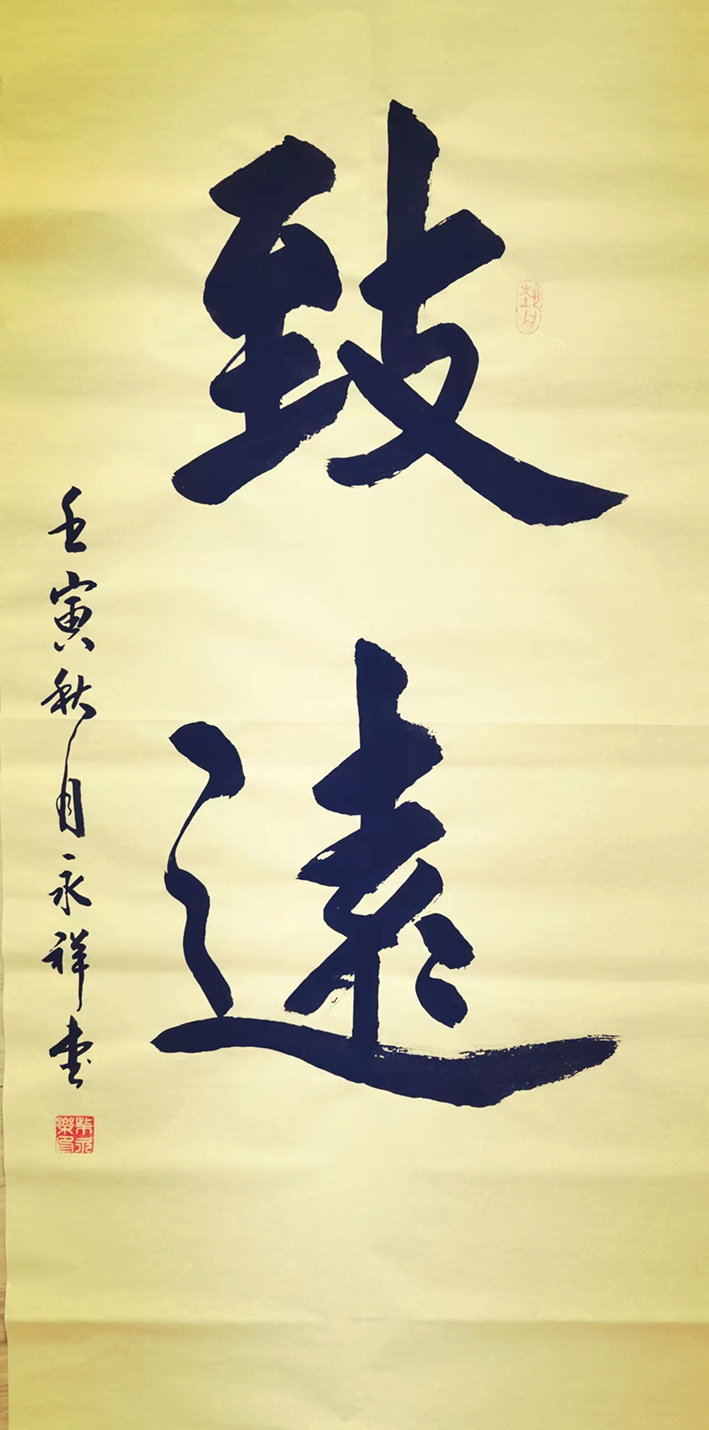 致遠
壬寅秋月永祥書